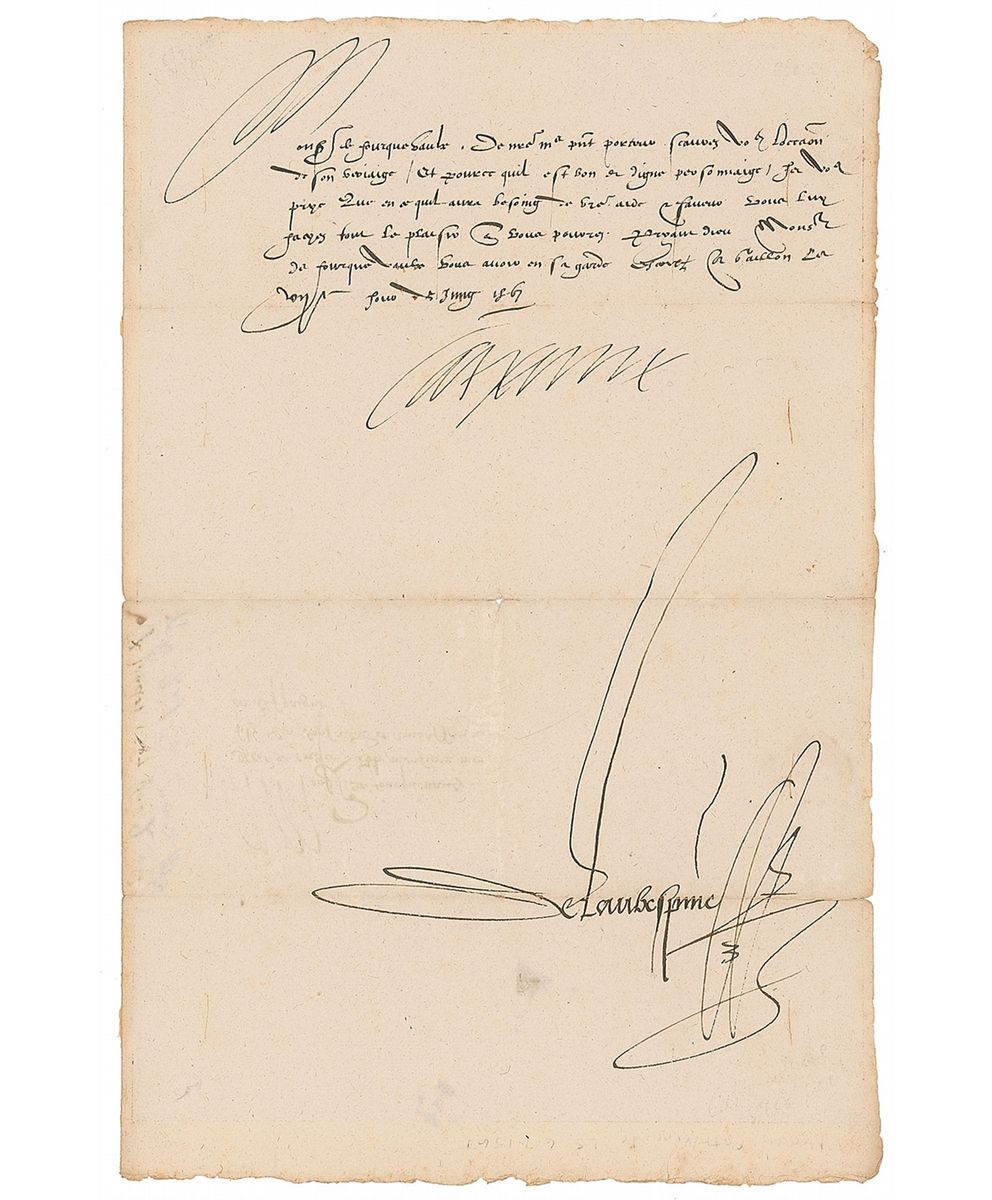 Mons.r de fourquevaulx. De nre me pnt porteur scaurez vo9 Loccaōn
de son voiaige / Et pource quil est bon et digne personnaige / Je vo9
prye Que en ce quil aura besoing de vre aide & faveur vous luy
faciez tout le plaisir q vous pourrez. Priant dieu Monsr
de fourquevaulx vous avoir en sa garde Escript A Gaillon Le
jour de Juing 156
Caterine
Delaubespine